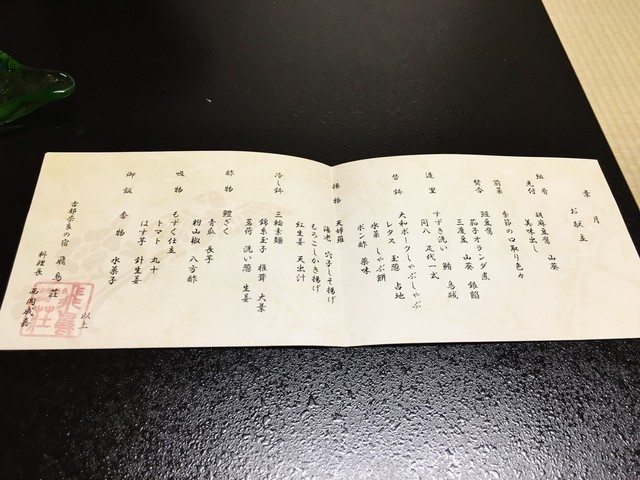 葉月
お献立
組肴
先付 胡麻豆腐 山葵
美味出し
前菜 季節の口取り色々
鰻豆腐 山葵 銀餡
茄子オランダ煮
三度豆
造里 すずき洗い 鮪 烏賊
間八 足代一式
替鉢 大和ポークしゃぶしゃぶ
レタス 玉葱 占地
水菜 しゃぶ餅
ポン酢 薬味
揚物 天婦羅
海老 穴子しそ揚げ
もろこしかき揚げ
紅生姜 天出汁
冷し鉢 三輪素麺
錦糸玉子 椎茸 大葉
茗荷 洗い葱 生姜
酢物 鱧ざく
青瓜 長芋
粉山椒 八方酢
吸物 もずく仕立
トマト 丸十
はす芋 針生姜
御飯 香物 水菓子
以上
古都奈良の宿 飛鳥荘
料理長